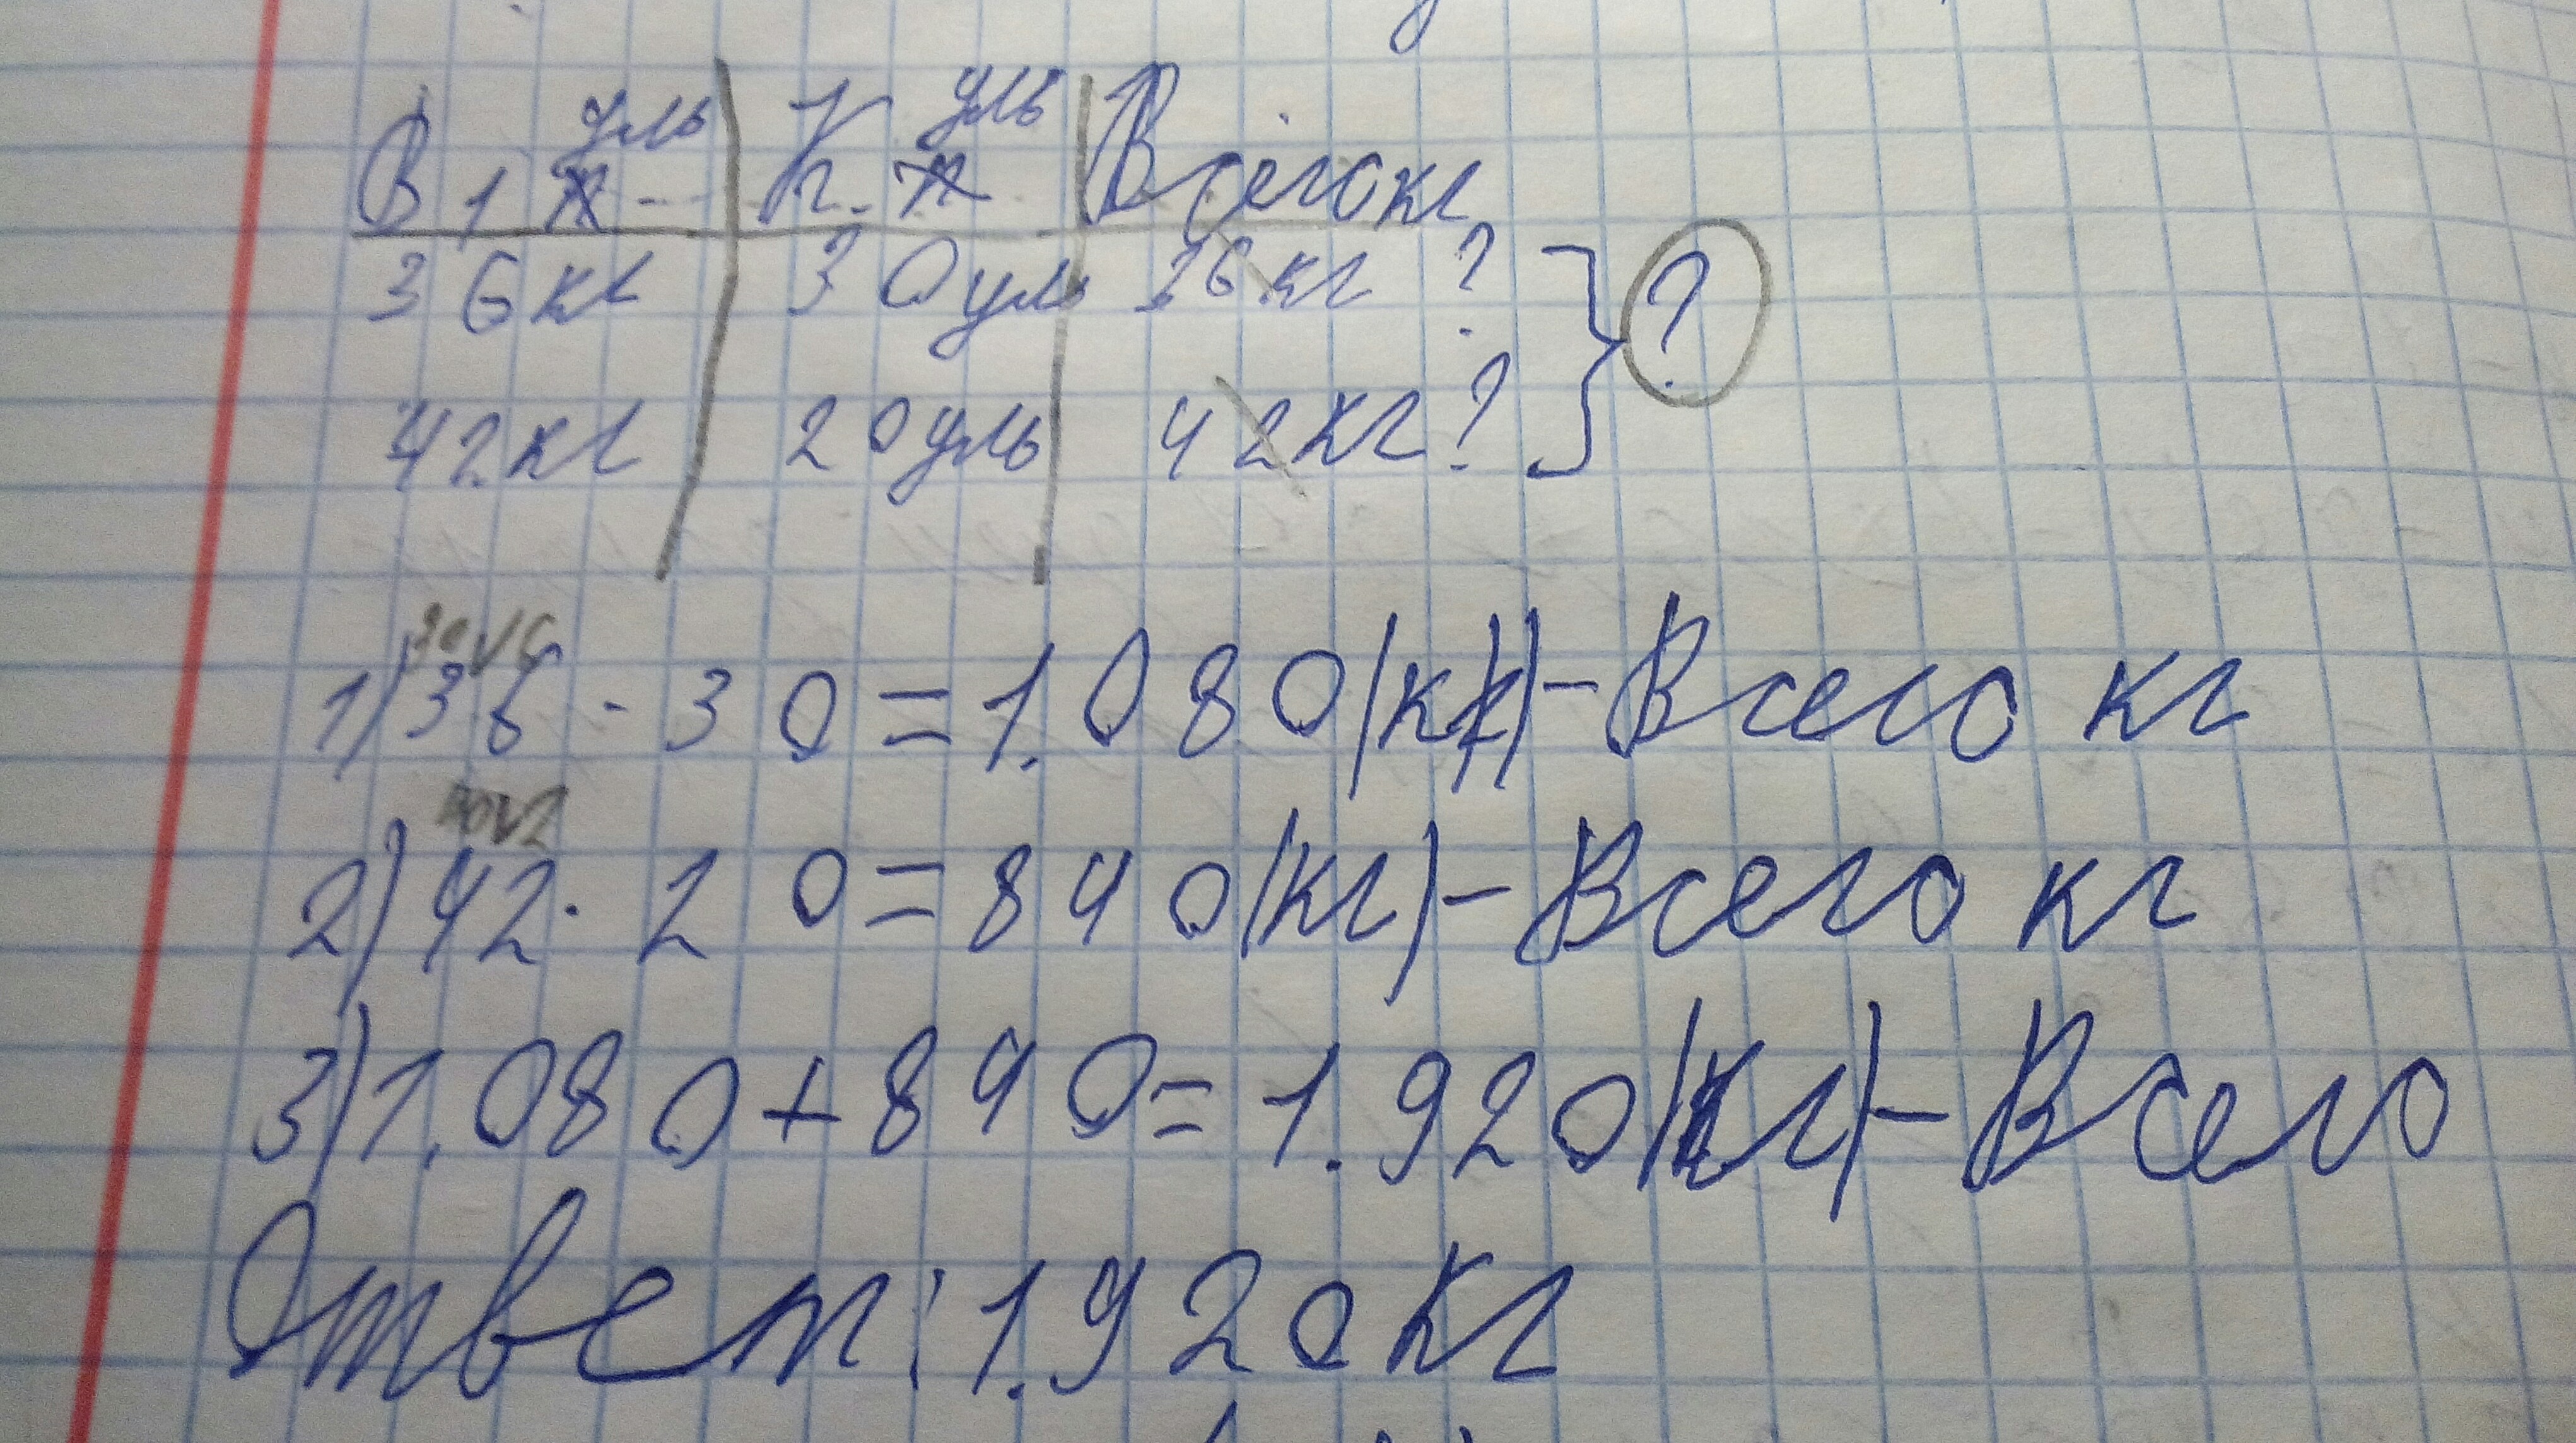 В 1 уль К. уль Всего кг
36кг 30уль 36кг ? ?
42кг 20уль 42кг ?
30 \/ 6
1) 36 · 30 = 1.080(кг) - Всего кг
40 \/ 2
2) 42 · 20 = 840(кг) - Всего кг
3) 1.080 + 840 = 1.920(кг) - Всего
Ответ: 1.920кг